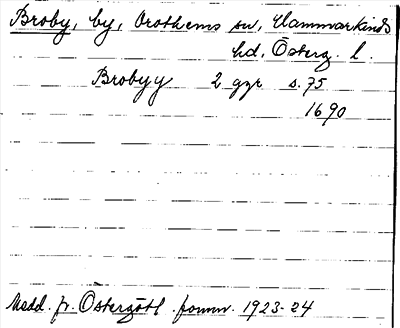 Broby, by, Drothems sn, Hammarkinds
hd, Österg. l.
Brobyy 2 gzr s. 75
1690
Medd. fr. Östergötl. fornm. 1923-24